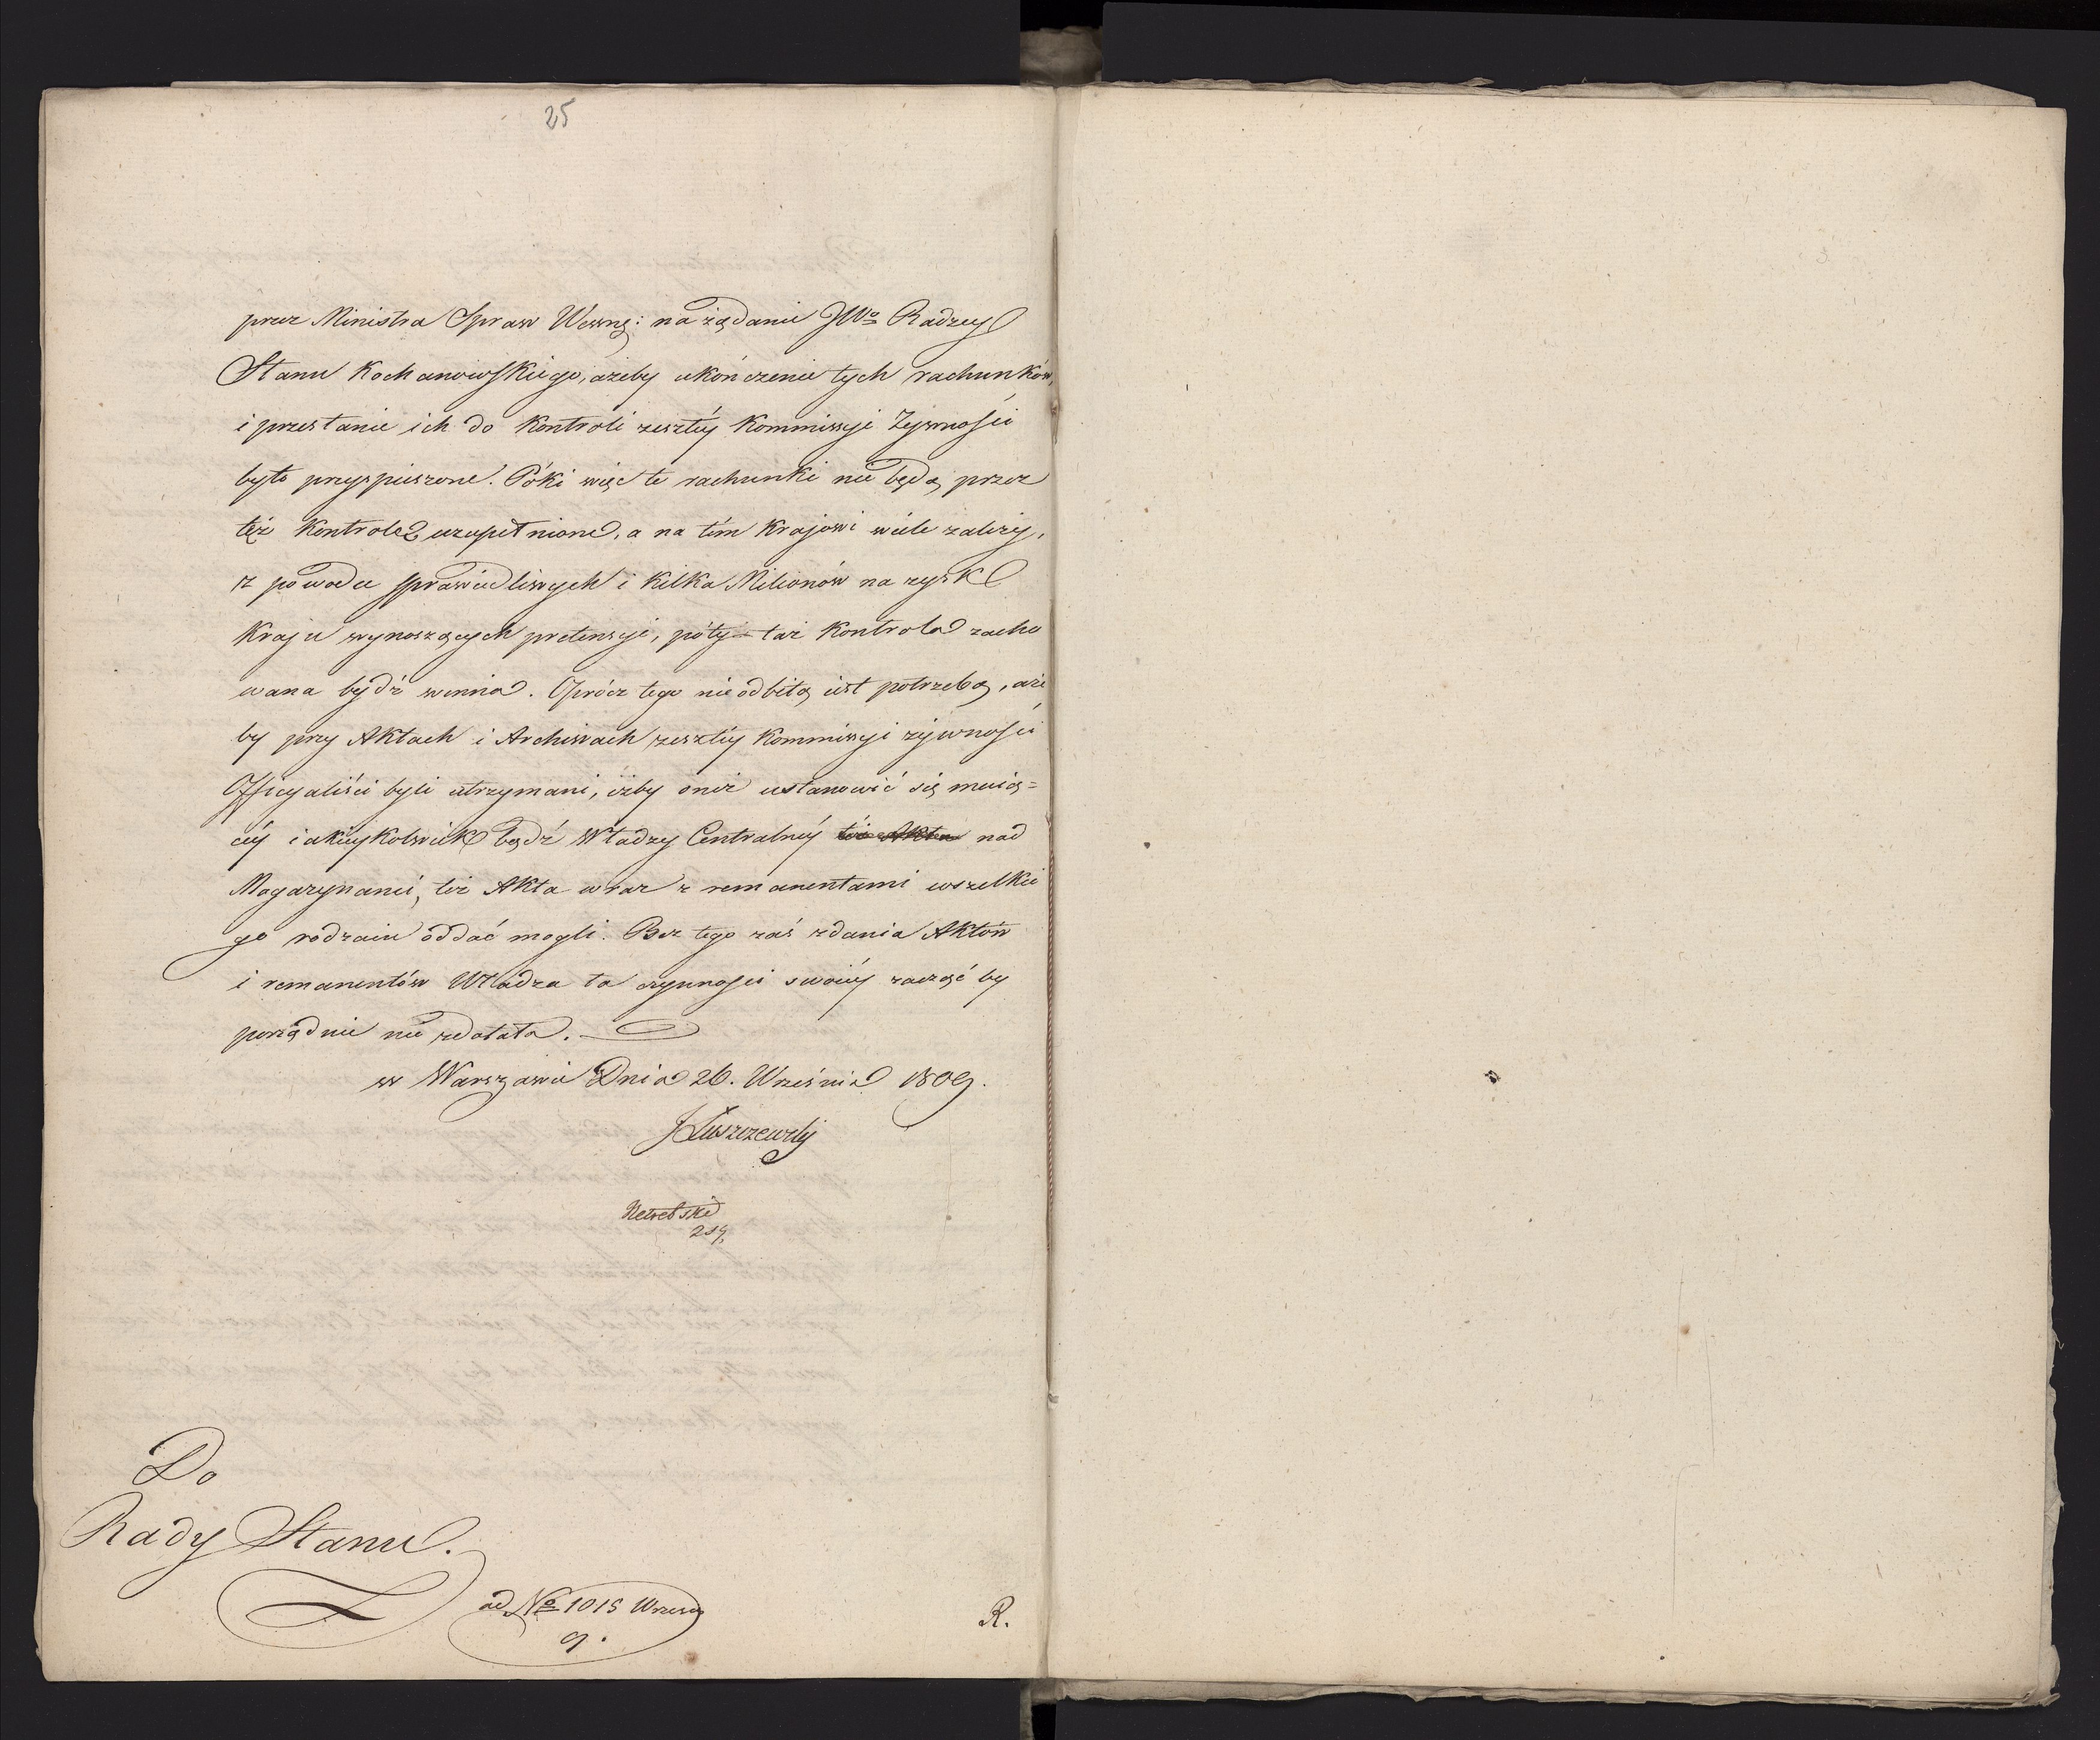 25
przez Ministra Spraw Wewnę: na żądanie JWo Radzcy
Stanu Kochanowskiego, ażeby ukończenie tych rachunków,
i przesłanie ich do Kontroli zeszłéy Kommissyi Żywności
było przyspieszone. Póki więc te rachunki nie będą przez
też Kontrolę uzupełnione, a na tém Krajowi wiele zależy,
z powodu sprawiedliwych i kilka Milionów na zysk
Kraju wynoszących pretensyi, póty taż Kontrola zacho
wana bydź winna. Oprócz tego nieodbitą iest potrzebą, aże
by przy Aktach i Archiwach zeszłéy Kommissyi żywności
Officyaliści byli utrzymani, iżby oniż ustanowić się maią=
céy iakieykolwiek bądź Władzy Centralnéy też Akta nad
Magazynami, też Akta wraz z remanentami wszelkie
go rodzaiu oddać mogli. Bez tego zaś zdania Aktów
i remanentów Władza ta czynności swoiéy zacząć by
porządnie nie zdołała.
w Warszawie Dnia 26. Września 1809.
JŁuszczewsky
Do
Rady Stanu.
ad No 1015 Wrześ
9.
R.